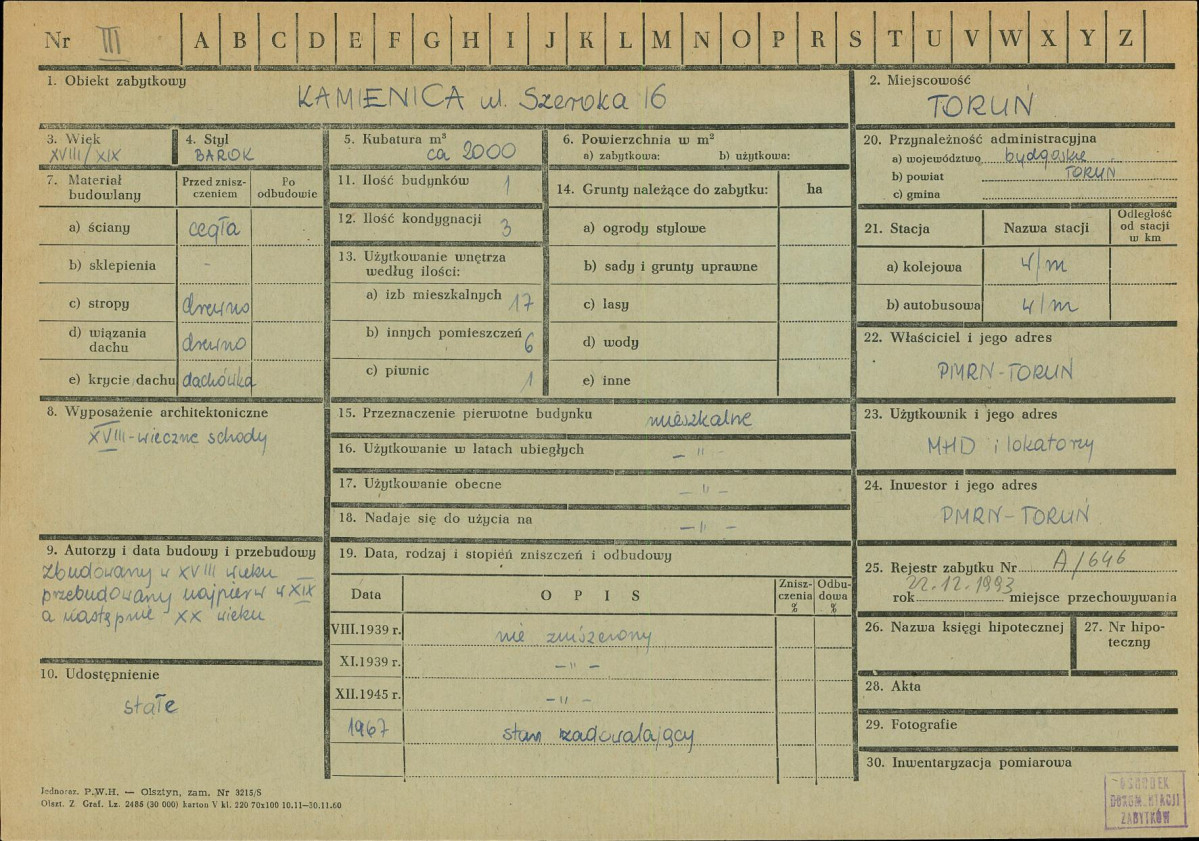 Nr III A B C D E F G H I J K L M N O P R S T U V W X Y Z
1. Obiekt zabytkowy
KAMIENICA ul. Szeroka 16
2. Miejscowość
TORUŃ
3. Wiek
XVIII/XIX
4. Styl
BAROK
5. Kubatura m³
ca 2000
6. Powierzchnia w m²
a) zabytkowa: b) użytkowa:
7. Materiał budowlany
Przed zniszczeniem
Po odbudowie
a) ściany cegła
b) sklepienia -
c) stropy drewno
d) wiązania dachu drewno
e) krycie dachu dachówka
8. Wyposażenie architektoniczne
XVIII-wieczne schody
9. Autorzy i data budowy i przebudowy
zbudowany w XVIII wieku
przebudowany najpierw w XIX
a następnie - XX wieku
10. Udostępnienie
stałe
11. Ilość budynków 1
12. Ilość kondygnacji 3
13. Użytkowanie wnętrza
według ilości:
a) izb mieszkalnych 17
b) innych pomieszczeń 6
c) piwnic 1
14. Grunty należące do zabytku: ha
a) ogrody stylowe
b) sady i grunty uprawne
c) lasy
d) wody
e) inne
15. Przeznaczenie pierwotne budynku mieszkalne
16. Użytkowanie w latach ubiegłych - " -
17. Użytkowanie obecne - " -
18. Nadaje się do użycia na - " -
19. Data, rodzaj i stopień zniszczeń i odbudowy
Data OPIS Zniszczenia % Odbudowa %
VIII.1939 r. nie zniszczony
XI.1939 r. - " -
XII.1945 r. - " -
1967 stan zadowalający
20. Przynależność administracyjna
a) województwo bydgoskie
b) powiat TORUŃ
c) gmina
21. Stacja Nazwa stacji Odległość od stacji w km
a) kolejowa w/m
b) autobusowa w/m
22. Właściciel i jego adres
PMRN-TORUŃ
23. Użytkownik i jego adres
MHD i lokatorzy
24. Inwestor i jego adres
PMRN-TORUŃ
25. Rejestr zabytku Nr A/646
rok 22.12.1993 miejsce przechowywania
26. Nazwa księgi hipotecznej
27. Nr hipoteczny
28. Akta
29. Fotografie
30. Inwentaryzacja pomiarowa
Jednoraz. P.W.H. — Olsztyn, zam. Nr 3215/S
Olszt. Z. Graf. Lz. 2485 (30 000) karton V kl. 220 70x100 10.11—30.11.60
OŚRODEK
DOKUMENTACJI
ZABYTKÓW